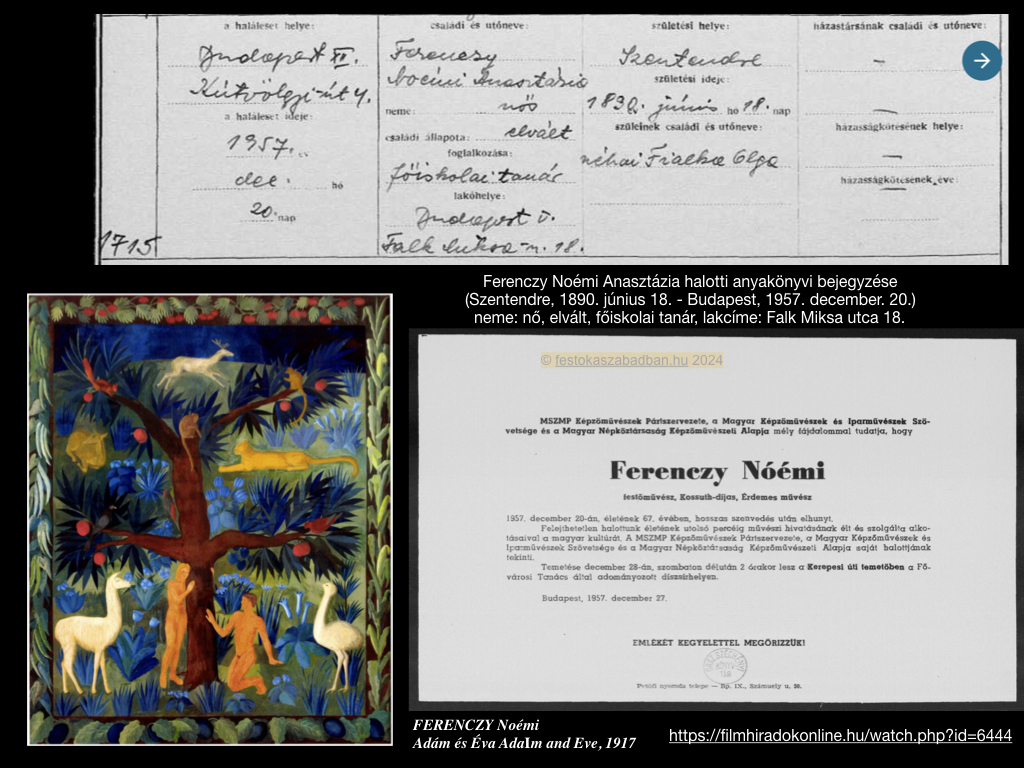 a haláleset helye:
családi és utóneve:
születési helye:
házastársának családi és utóneve:
Budapest XII.
Ferenczy
Szentendre
Kútvölgyi-út 4.
Noémi Anasztázia
születési ideje:
a haláleset ideje:
neme: nős
1890. június hó 18. nap
házasságkötésének helye:
1957. év
családi állapota: elvált
szüleinek családi és utóneve:
foglalkozása:
néhai Fialka Olga
dec. hó
főiskolai tanár
házasságkötésének éve:
lakóhelye:
20. nap
Budapest V.
1715
Falk Miksa-u. 18.
Ferenczy Noémi Anasztázia halotti anyakönyvi bejegyzése
(Szentendre, 1890. június 18. - Budapest, 1957. december. 20.)
neme: nő, elvált, főiskolai tanár, lakcíme: Falk Miksa utca 18.
© festokaszabadban.hu 2024
MSZMP Képzőművészek Pártszervezete, a Magyar Képzőművészek és Iparművészek Szö-
vetsége és a Magyar Népköztársaság Képzőművészeti Alapja mély fájdalommal tudatja, hogy
Ferenczy Nóémi
festőművész, Kossuth-díjas, Érdemes művész
1957. december 20-án, életének 67. évében, hosszas szenvedés után elhunyt.
Felejthetetlen halottunk életének utolsó percéig művészi hivatásának élt és szolgálta alko-
tásaival a magyar kultúrát. A MSZMP Képzőművészek Pártszervezete, a Magyar Képzőművészek és
Iparművészek Szövetsége és a Magyar Népköztársaság Képzőművészeti Alapja saját halottjának
tekinti.
Temetése december 28-án, szombaton délután 2 órakor lesz a Kerepesi úti temetőben a Fő-
városi Tanács által adományozott díszsírhelyen.
Budapest, 1957. december 27.
EMLÉKÉT KEGYELETTEL MEGŐRIZZÜK!
Petőfi nyomda telepe — Bp. IX., Számuely u. 56.
FERENCZY Noémi
Adám és Éva Adaĺm and Eve, 1917
https://filmhiradokonline.hu/watch.php?id=6444